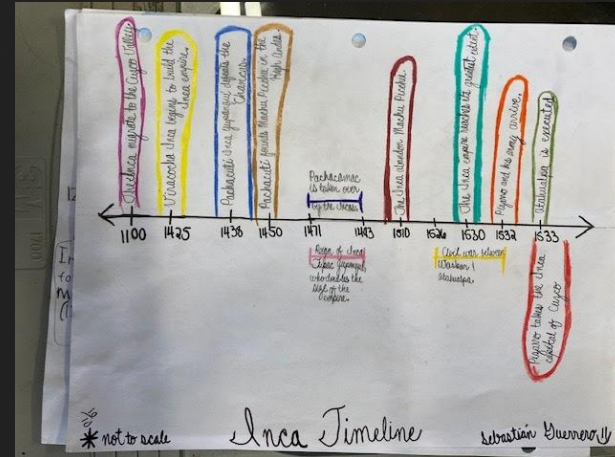 The Inca migrate to the Cusco Valley.
Viracocha Inca begins to build the
Inca empire.
Pachacuti Inca Yupanqui defeats the
Chancas.
Pachacuti founds Machu Picchu in the
high Andes.
Pachacamac
is taken over
by the Incas.
The Inca abandon Machu Picchu.
The Inca empire reaches its greatest extent.
Pizarro and his army arrive.
Atahualpa is executed
1100
1425
1438
1450
1471
1493
1510
1526
1530
1532
1533
Reign of Inca
Yupanqui,
who doubles the
size of the
empire.
Civil war between
Atahualpa.
Pizarro takes the Inca
capital of Cusco
* not to scale
Inca Timeline
Sebastián Guerrero